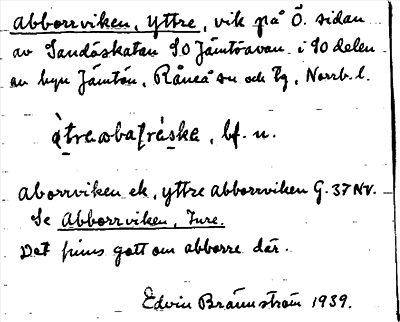 Abborrviken, Yttre, vik på Ö. sidan
av Sandåskatan SO Jämtöavan i SO delen
av byn Jämtön, Råneå sn och tg, Norrb. l.
bf. n.
Aborrviken ek, yttre Abborrviken G. 37 NV.
Se Abborrviken, Inre.
Det finns gott om abborre där.
Edvin Brännström 1939.